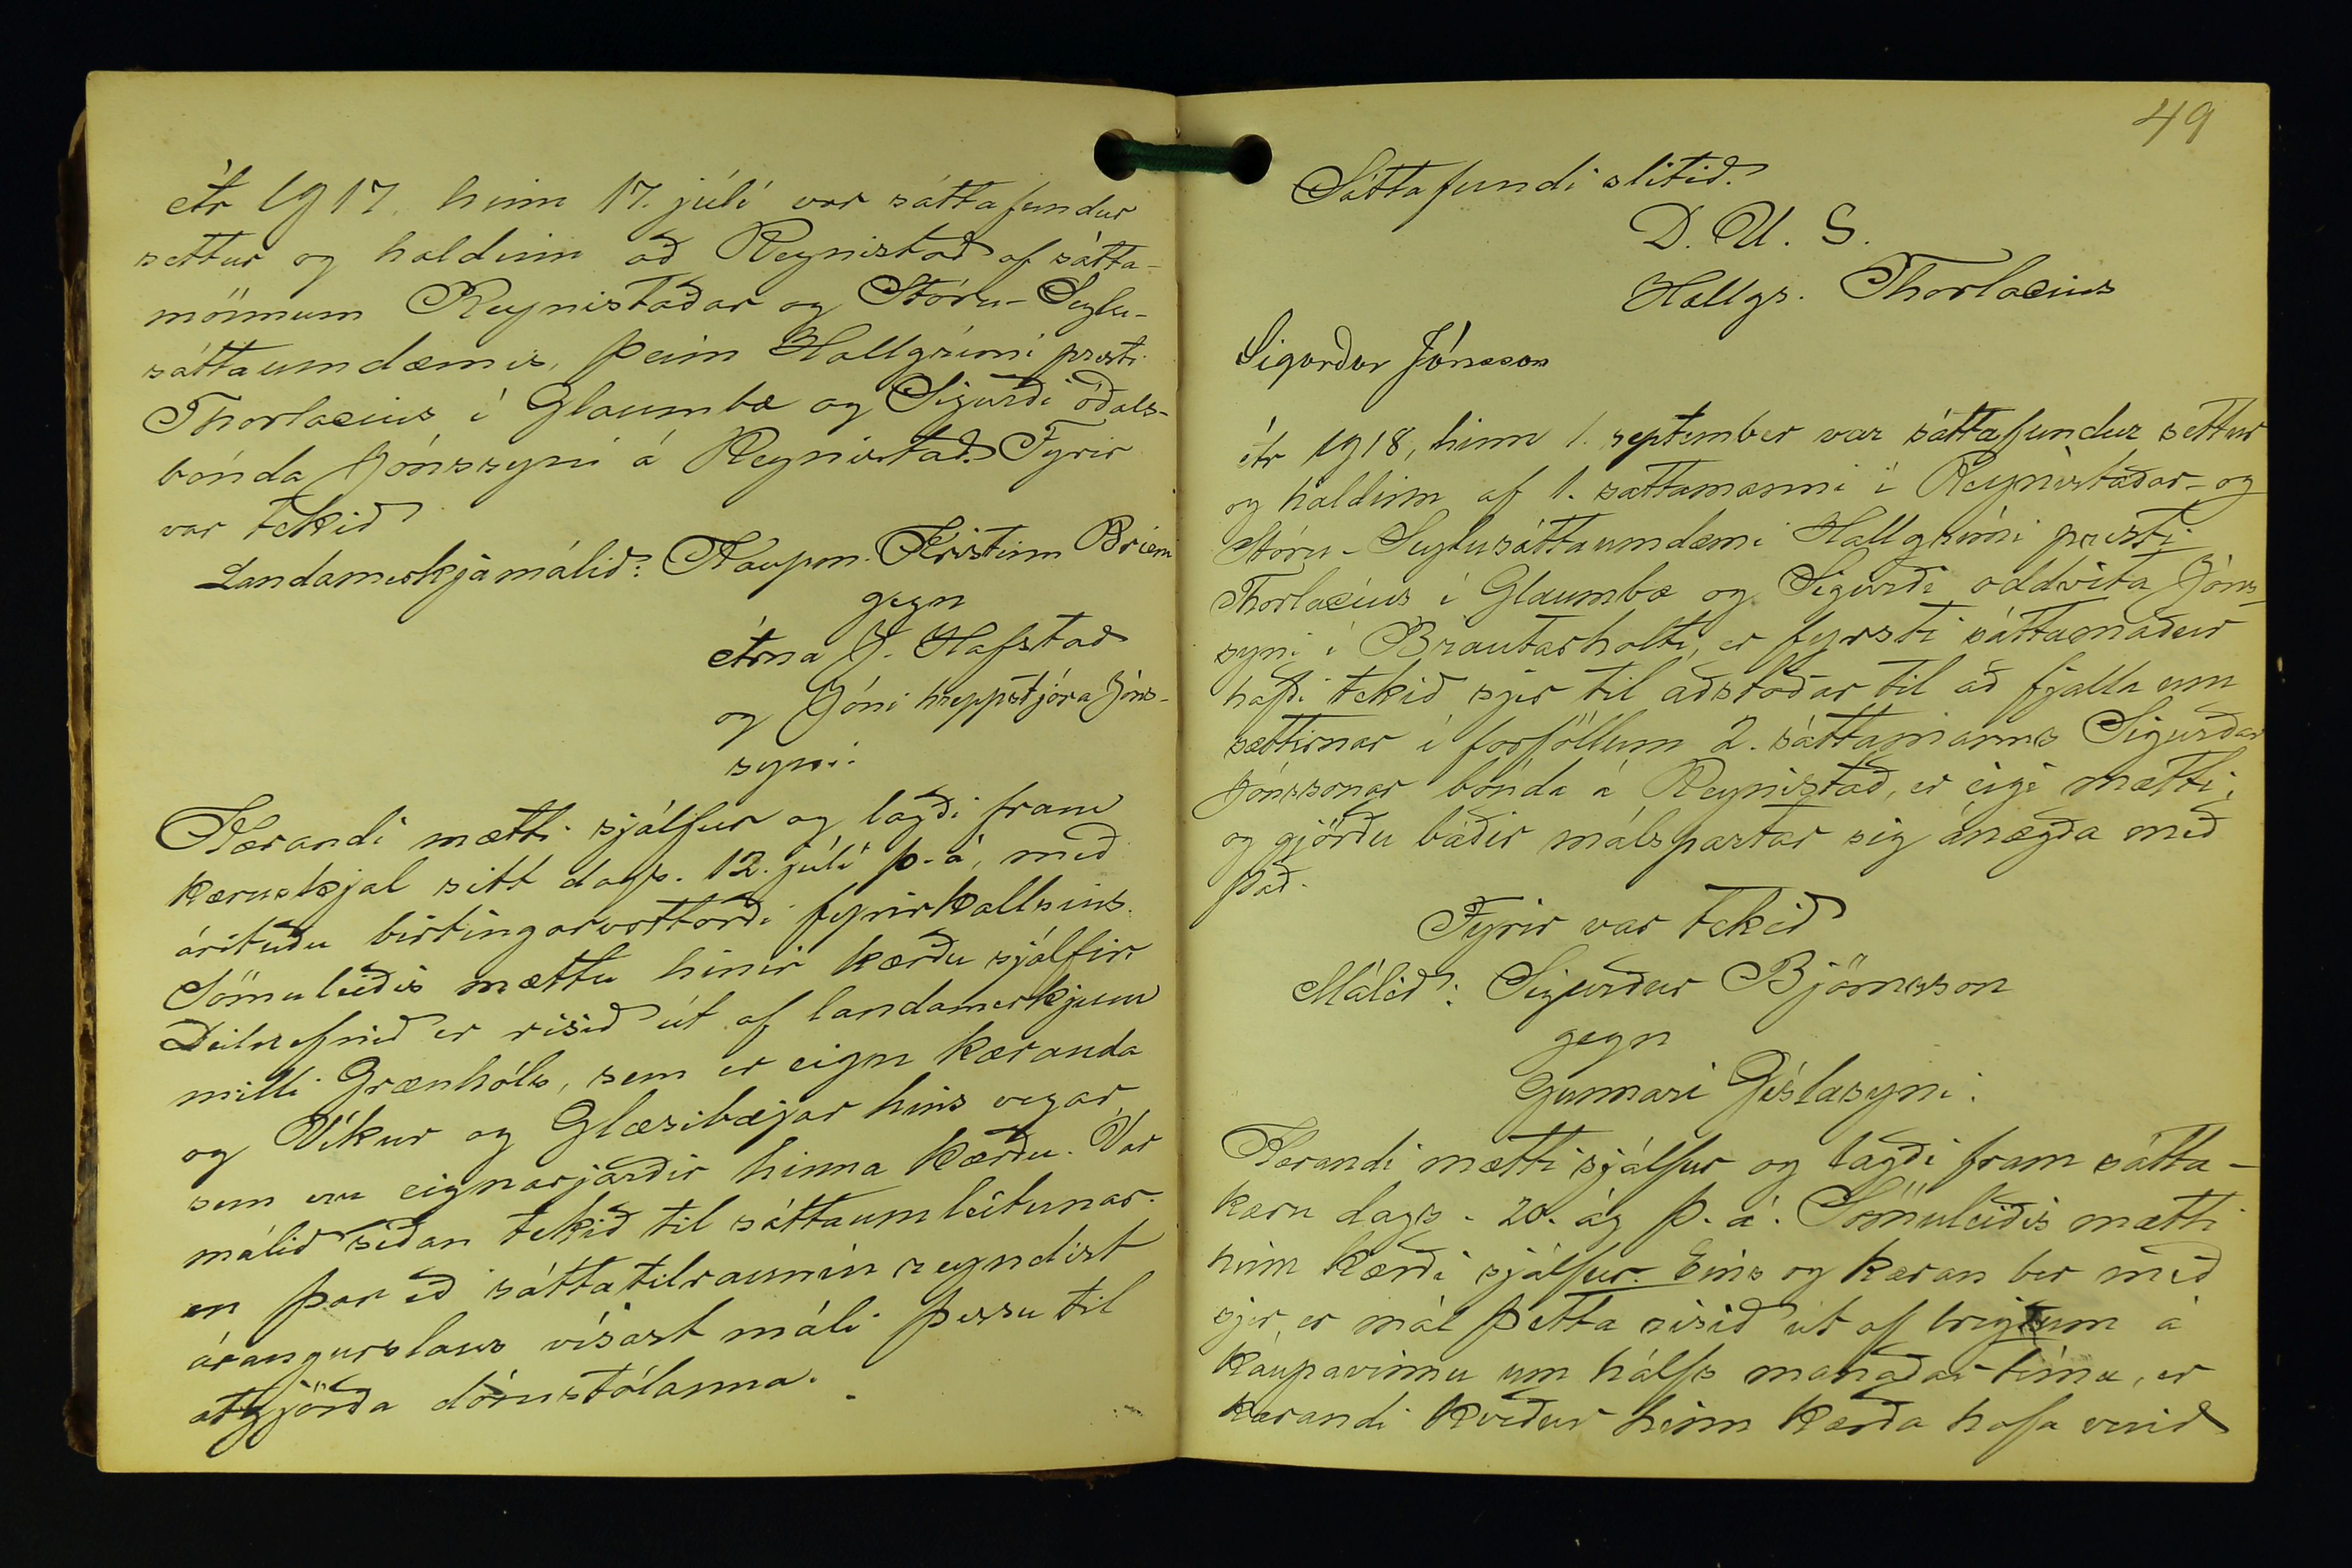 Ár 1917, hinn 17. júlí var sáttafundur
settur og haldinn að Reynistað af sátta-
mönnum Reynistaðar og Stóru-Seylu-
sáttaumdæmis, þeim Hallgrími presti
Thorlacius í Glaumbæ og Sigurði óðals-
bónda Jónssyni á Reynistað. Fyrir
var tekið
Landamerkjamálið: Kaupm. Kristinn Briem
gegn
Árna J. Hafstað
og Jóni hreppstjóra Jóns-
syni.
Kærandi mætti sjálfur og lagði fram
kæruskjal sitt dags. 12. júlí þ. á, með
árituðu birtingarvottorði fyrirkallsins.
Sömuleiðis mættu hinir kærðu sjálfir.
Deiluefnið er risið út af landamerkjum
milli Grænhóls, sem er eign kæranda
og Víkur og Glæsibæjar hins vegar
sem eru eignarjarðir hinna kærðu. Var
málið síðan tekið til sáttaumleitunar.
en þar eð sáttatilraunin reyndist
árangurslaus vísast máli þessu til
atgjörða dómstólanna.
49
Sáttafundi slitið.
D. U. S.
Hallgr. Thorlacius
Sigurður Jónsson
Ár 1918, hinn 1. september var sáttafundur settur
og haldinn af 1. sáttamanni í Reynistaðar- og
Stóru-Seylusáttaumdæmi Hallgrími presti
Thorlacius í Glaumbæ og Sigurði oddvita Jóns-
syni í Brautarholti, er fyrsti sáttamaður
hafði tekið sjer til aðstoðar til að fjalla um
sættirnar í forföllum 2. sáttamanns Sigurðar
Jónssonar bónda á Reynistað, er eigi mætti,
og gjörðu báðir málspartar sig ánægða með
það.
Fyrir var tekið
Málið: Sigurður Björnsson
gegn
Gunnari Gíslasyni.
Kærandi mætti sjálfur og lagði fram sátta-
kæru dags. 20. ág þ. á. Sömuleiðis mætti
hinn kærði sjálfur. Eins og kæran ber með
sjer, er mál þetta risið út af brigðum á
kaupavinnu um hálfs mánaðar tíma, er
kærandi kveður hinn kærða hafa verið